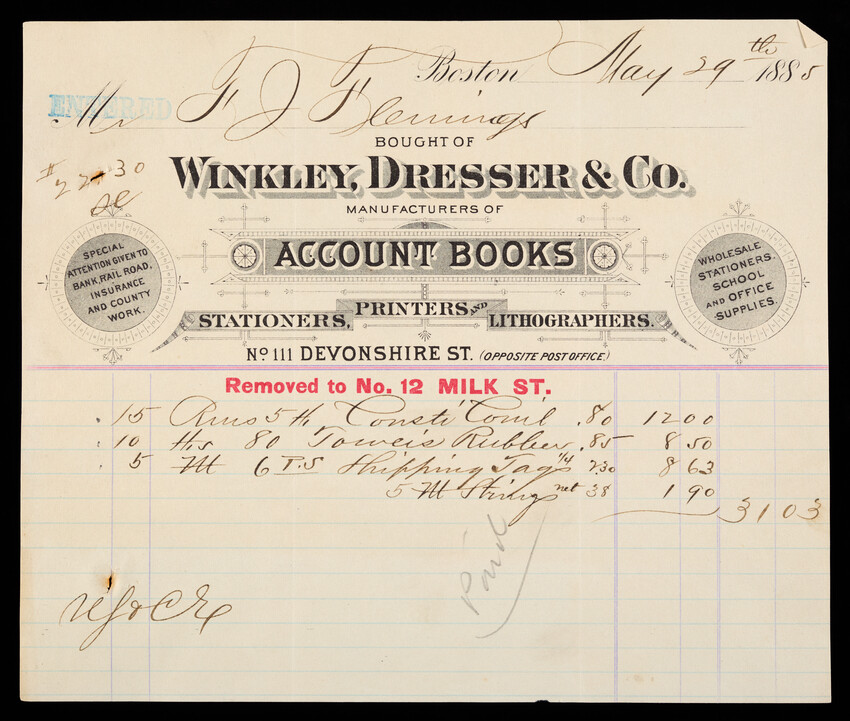 Boston May 29th 1885
ENTERED
Mr F J Flemings
BOUGHT OF
$22-30
WINKLEY, DRESSER & CO.
MANUFACTURERS OF
ACCOUNT BOOKS
SPECIAL
ATTENTION GIVEN TO
BANK, RAIL ROAD,
INSURANCE
AND COUNTY
WORK.
WHOLESALE
STATIONERS.
SCHOOL
AND OFFICE
SUPPLIES.
STATIONERS, PRINTERS AND LITHOGRAPHERS.
No 111 DEVONSHIRE ST. (OPPOSITE POST OFFICE.)
Removed to No. 12 MILK ST.
15 Rms 5 lb .80 12 00
10 lbs 80 Towers Rubber .85 8 50
5 M 6 P.S Shipping Tags 2.30 8 63
5 M Strings net 38 1 90
31 03
Paid